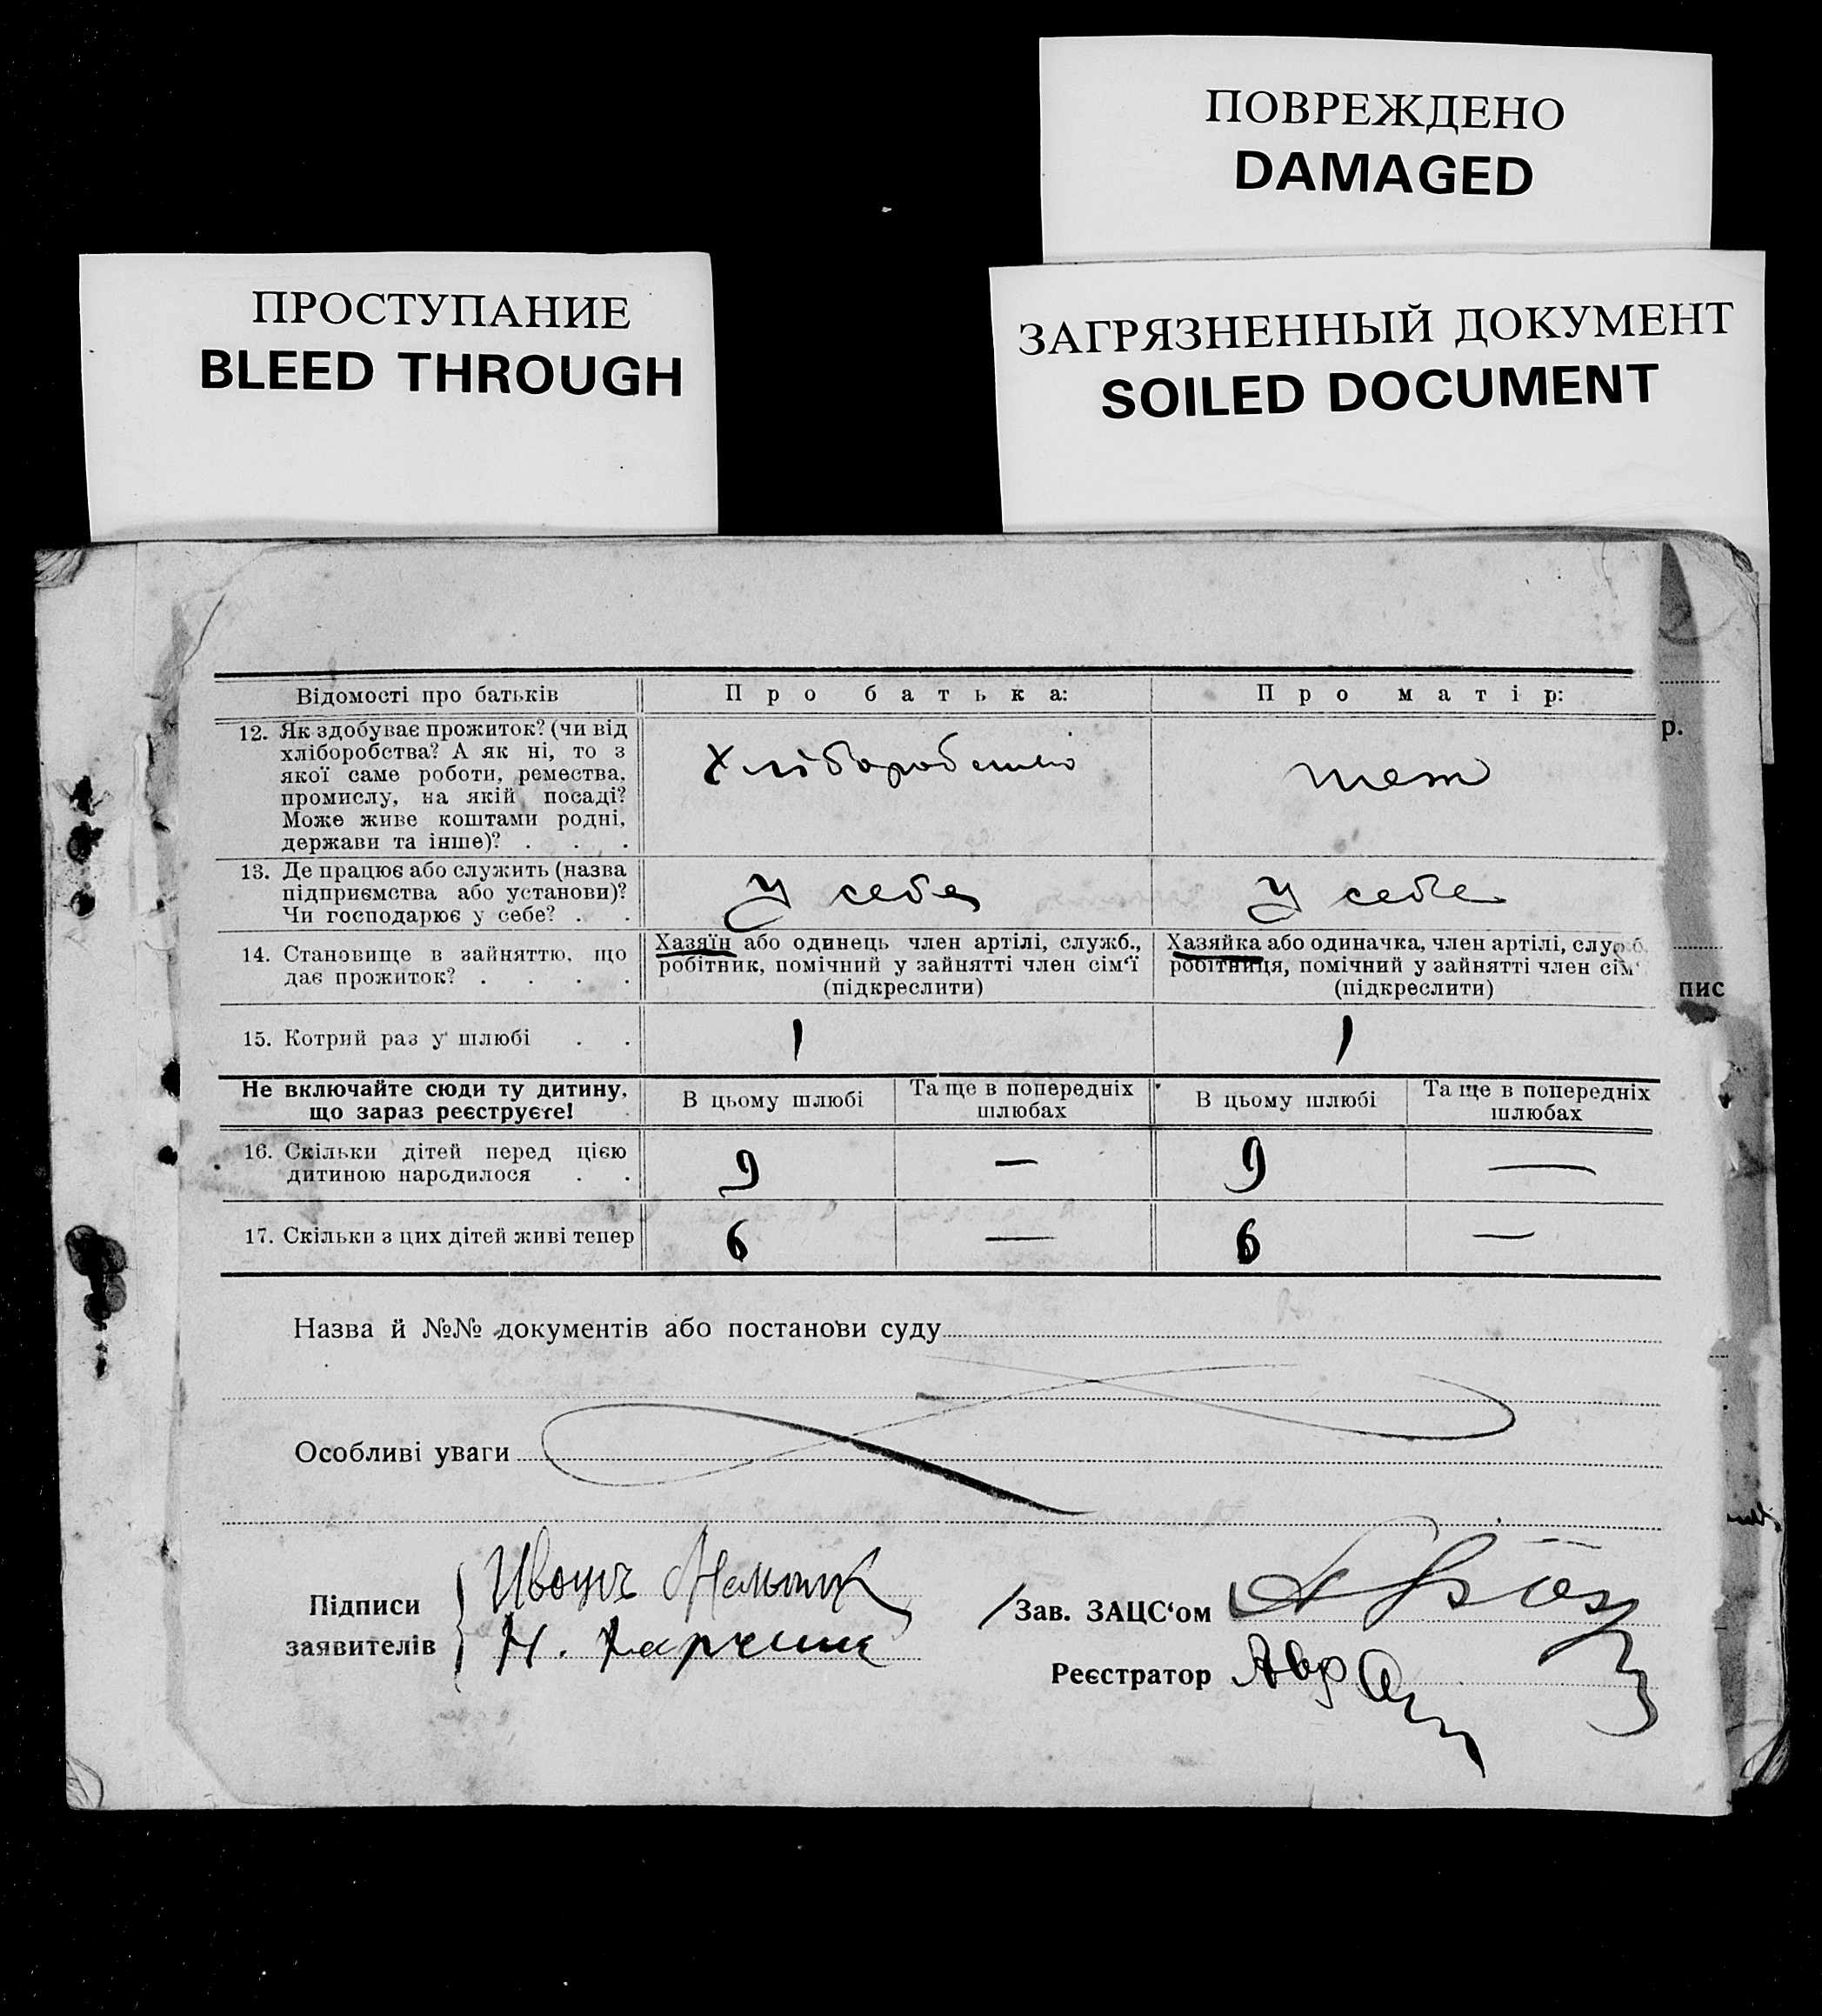 ПОВРЕЖДЕНО
DAMAGED
ПРОСТУПАНИЕ
BLEED THROUGH
ЗАГРЯЗНЕННЫЙ ДОКУМЕНТ
SOILED DOCUMENT
Відомості про батьків
Про батька:
Про матір:
р.
12. Як здобуває прожиток? (чи від
хліборобства? А як ні, то з
якої саме роботи, ремества,
промислу, на якій посаді?
Може живе коштами родні,
держави та інше)? . . .
Хліборобство
теж
13. Де працює або служить (назва
підприємства або установи)?
Чи господарює у себе? . .
У себе
У себе
14. Становище в зайняттю, що
дає прожиток? . . . .
Хазяїн або одинець член артілі, служб.,
робітник, помічний у зайнятті член сім'ї
(підкреслити)
Хазяйка або одиначка, член артілі, служб.
робітниця, помічний у зайнятті член сім'
(підкреслити)
пис
15. Котрий раз у шлюбі . .
1
1
Не включайте сюди ту дитину,
що зараз реєструєте!
В цьому шлюбі
Та ще в попередніх
шлюбах
В цьому шлюбі
Та ще в попередніх
шлюбах
16. Скільки дітей перед цією
дитиною народилося . .
9
—
9
—
17. Скільки з цих дітей живі тепер
6
—
6
—
Назва й №№ документів або постанови суду
Особливі уваги
Підписи
заявителів
Н. Харчина
Зав. ЗАЦС'ом
Реєстратор